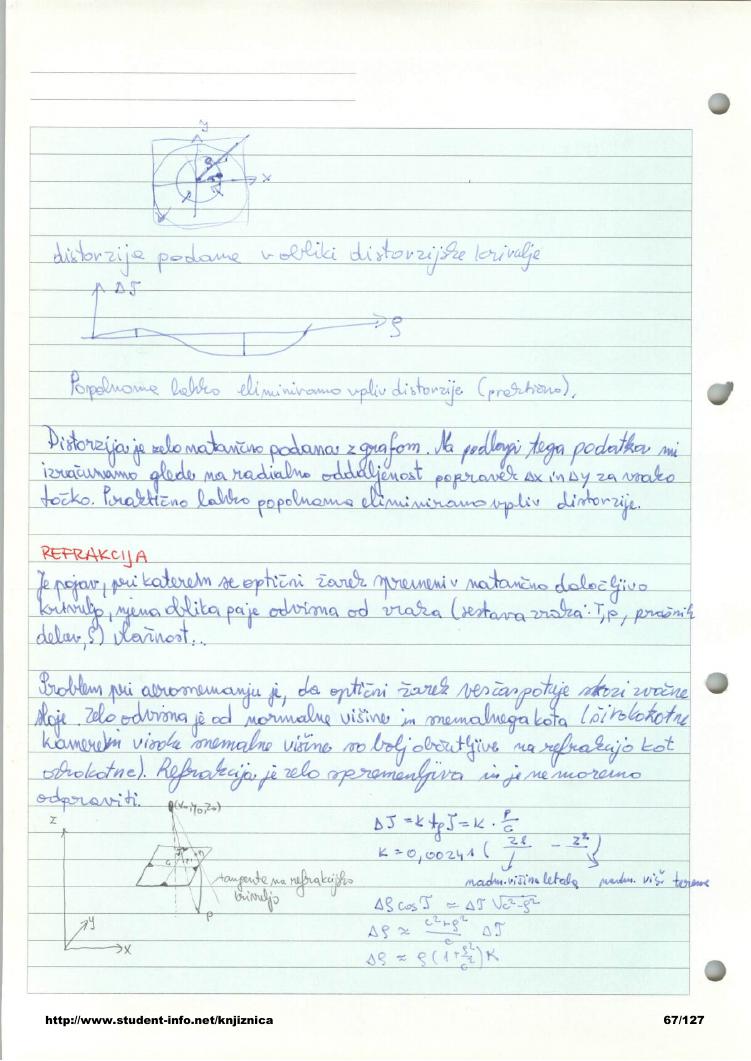 y
x
distorzija podana v obliki distorzijske krivulje
ΔT
ρ
Popolnoma lahko eliminiramo vpliv distorzije (praktično).
Distorzija je zelo natančno podana z grafom. Na podlagi tega podatka mi
izračunamo glede na radialno oddaljenost popravek Δx in Δy za vsako
točko. Praktično lahko popolnoma eliminiramo vpliv distorzije.
REFRAKCIJA
Je pojav, pri katerem se optični žarek spremeni v natančno določljivo
krivuljo, njena oblika pa je odvisna od zraka (sestava zraka: T, p, prašnih
delcev, ρ) vlažnost...
Problem pri aerosnemanju je, da optični žarek ves čas potuje skozi zračne
sloje. Zelo odvisna je od normalne višine in snemalnega kota (širokokotne
kamere in visoke snemalne višine so bolj občutljive na refrakcijo kot
ozkokotne). Refrakcija je zelo spremenljiva in je ne moremo
odpraviti.
(x₀,y₀,z₀)
z
tangenta na refrakcijsko
krivuljo
P
y
x
ΔT = K tg T = K · ρ/c
K = 0,00241 (
nadm. višina letala nadm. viš. terena
Δρ cos T ≈ ΔT √c²-ρ²
Δρ ≈ c²+ρ²/c ΔT
Δρ ≈ ρ(1+ρ²/c²)K
http://www.student-info.net/knjiznica
67/127